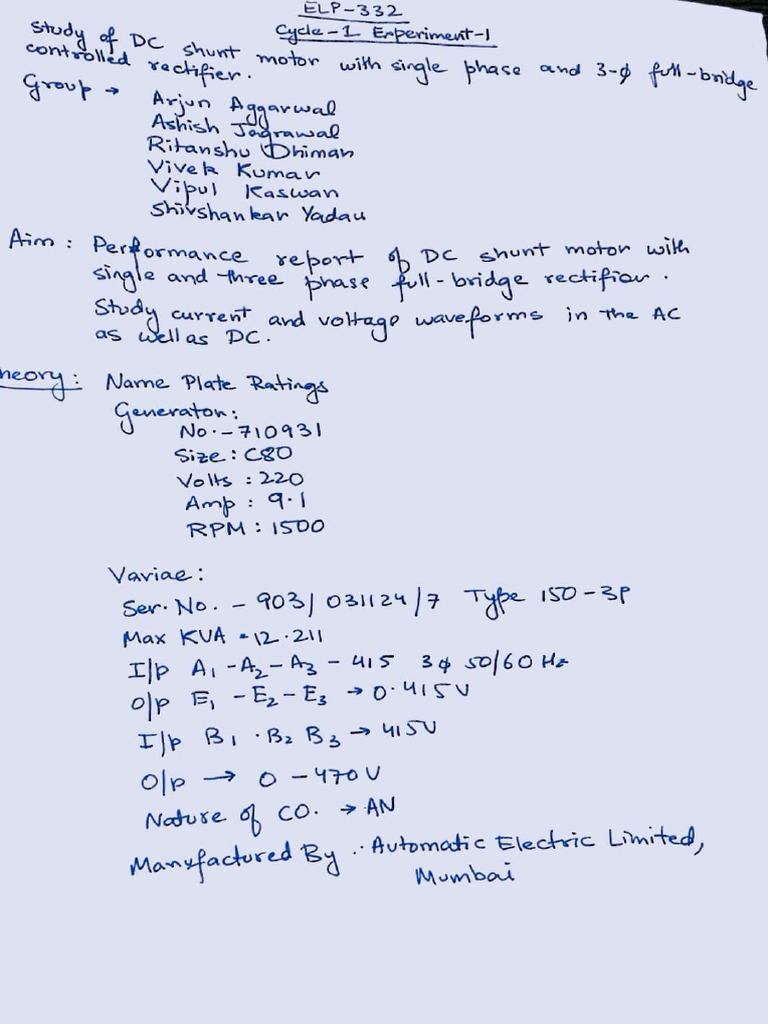 ELP-332
Cycle-1 Experiment-1
Study of DC shunt motor with single phase and 3-ϕ full-bridge
controlled rectifier.
Group → Arjun Aggarwal
Ashish Jagrawal
Ritanshu Dhiman
Vivek Kumar
Vipul Kaswan
Shivshankar Yadav
Aim : Performance report of DC shunt motor with
single and three phase full-bridge rectifier.
Study current and voltage waveforms in the AC
as well as DC.
heory: Name Plate Ratings
Generator:
No.-710931
Size: C80
Volts : 220
Amp : 9.1
RPM : 1500
Variac:
Ser. No. - 903/031124/7 Type 150-3P
Max KVA - 12.211
I/p A₁-A₂-A₃ - 415 3ϕ 50/60 Hz
O/p E₁ -E₂-E₃ → 0.415V
I/p B₁ . B₂ B₃ → 415V
O/p → 0 -470V
Nature of CO. → AN
Manufactured By :. Automatic Electric Limited,
Mumbai